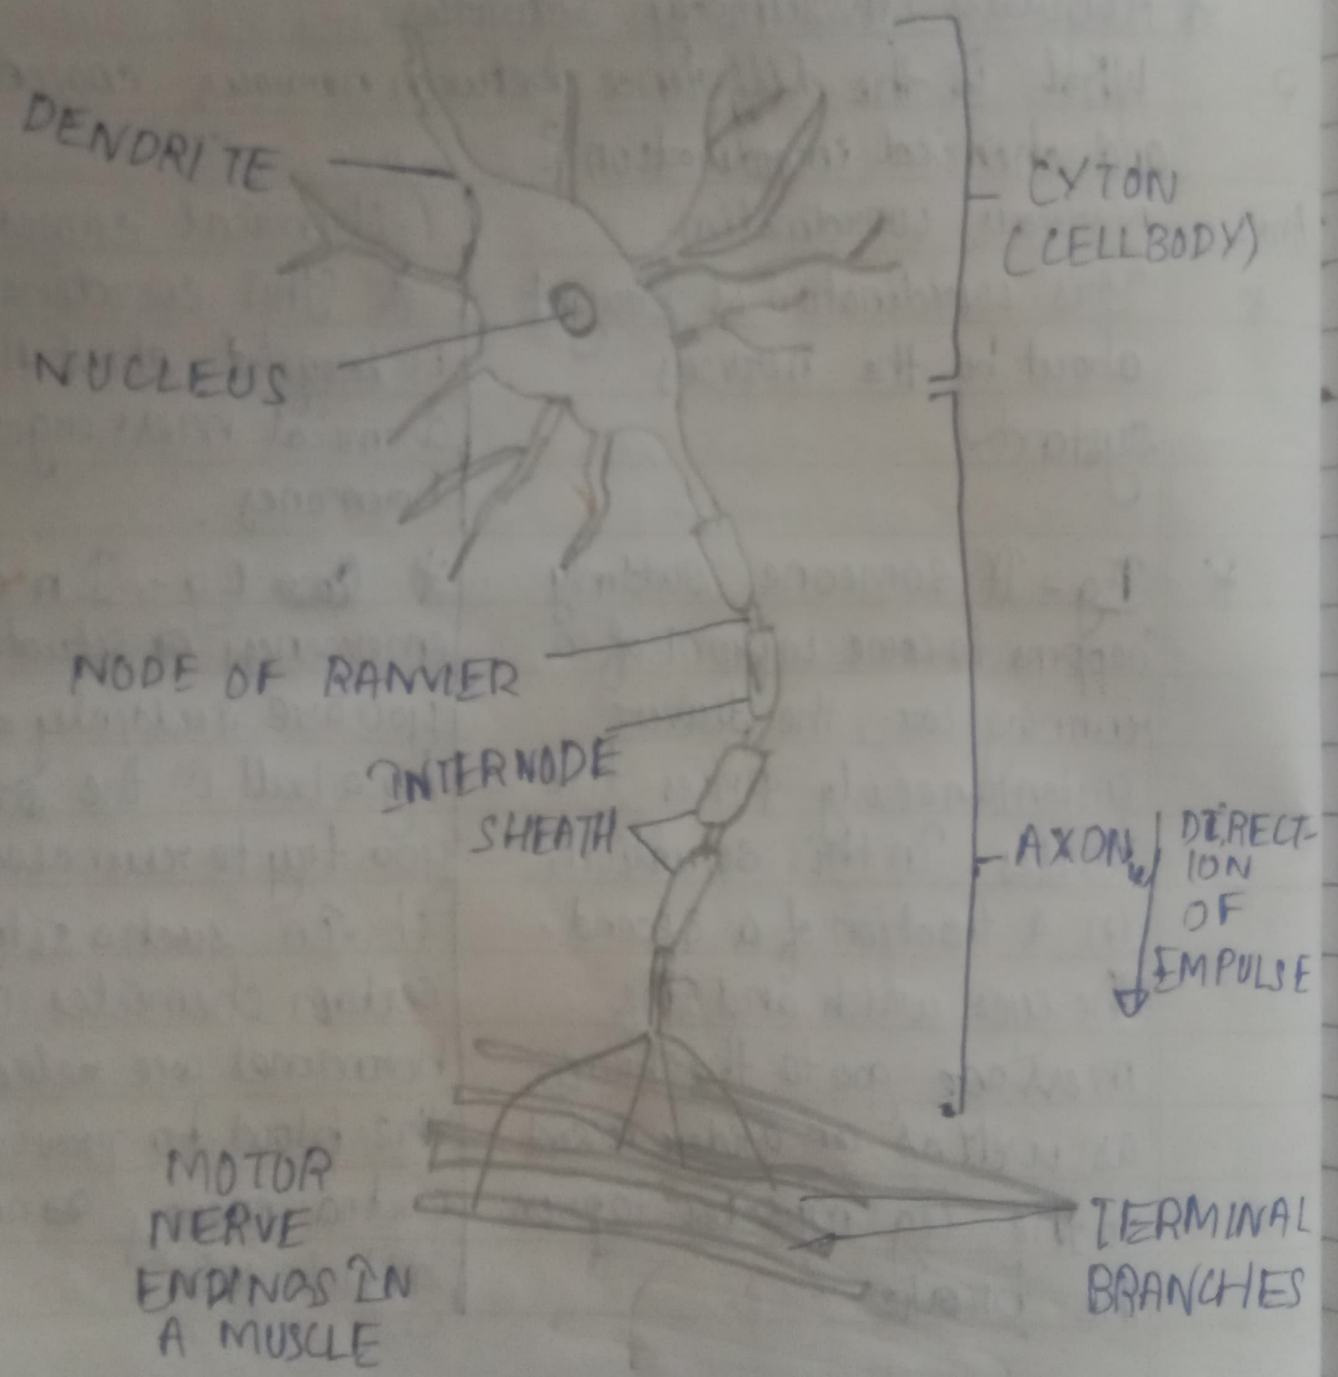 DENDRITE
CYTON
(CELLBODY)
NUCLEUS
NODE OF RANVIER
INTERNODE
SHEATH
AXON
DIRECT-
ION
OF
EMPULSE
MOTOR
NERVE
ENDINGS IN
A MUSCLE
TERMINAL
BRANCHES